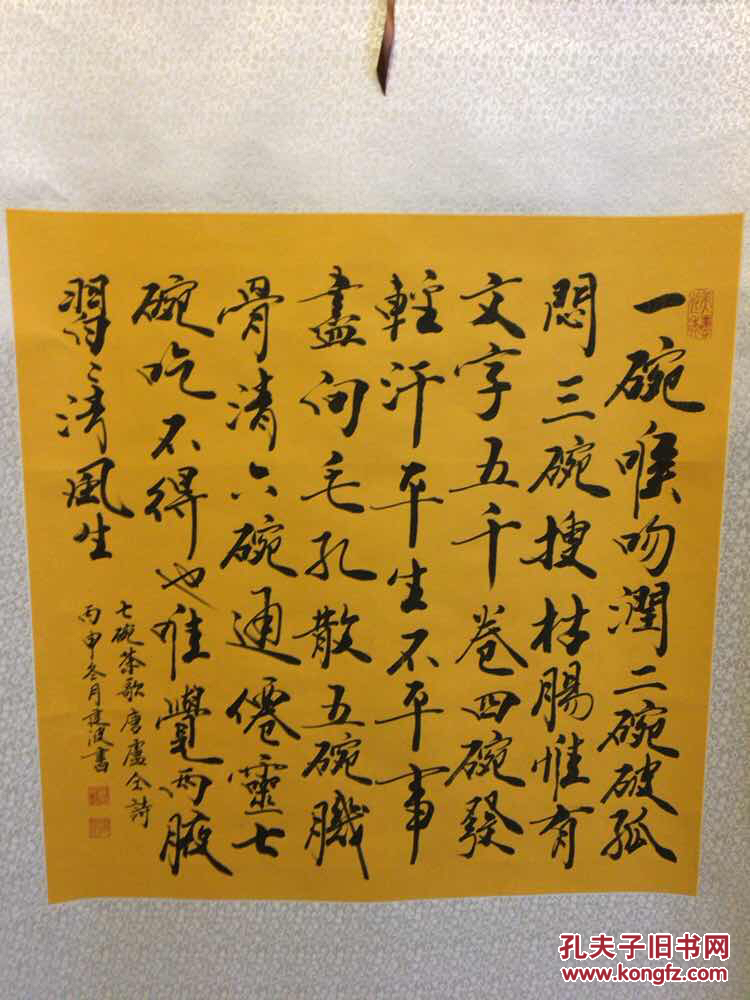 一碗喉吻潤二碗破孤
悶三碗搜枯腸惟有
文字五千卷四碗發
輕汗平生不平事
盡向毛孔散五碗肌
骨清六碗通僊靈七
碗吃不得也唯覺兩腋
習〻清風生
七碗茶歌唐盧仝詩
丙申冬月建波書
孔夫子旧书网
www.kongfz.com